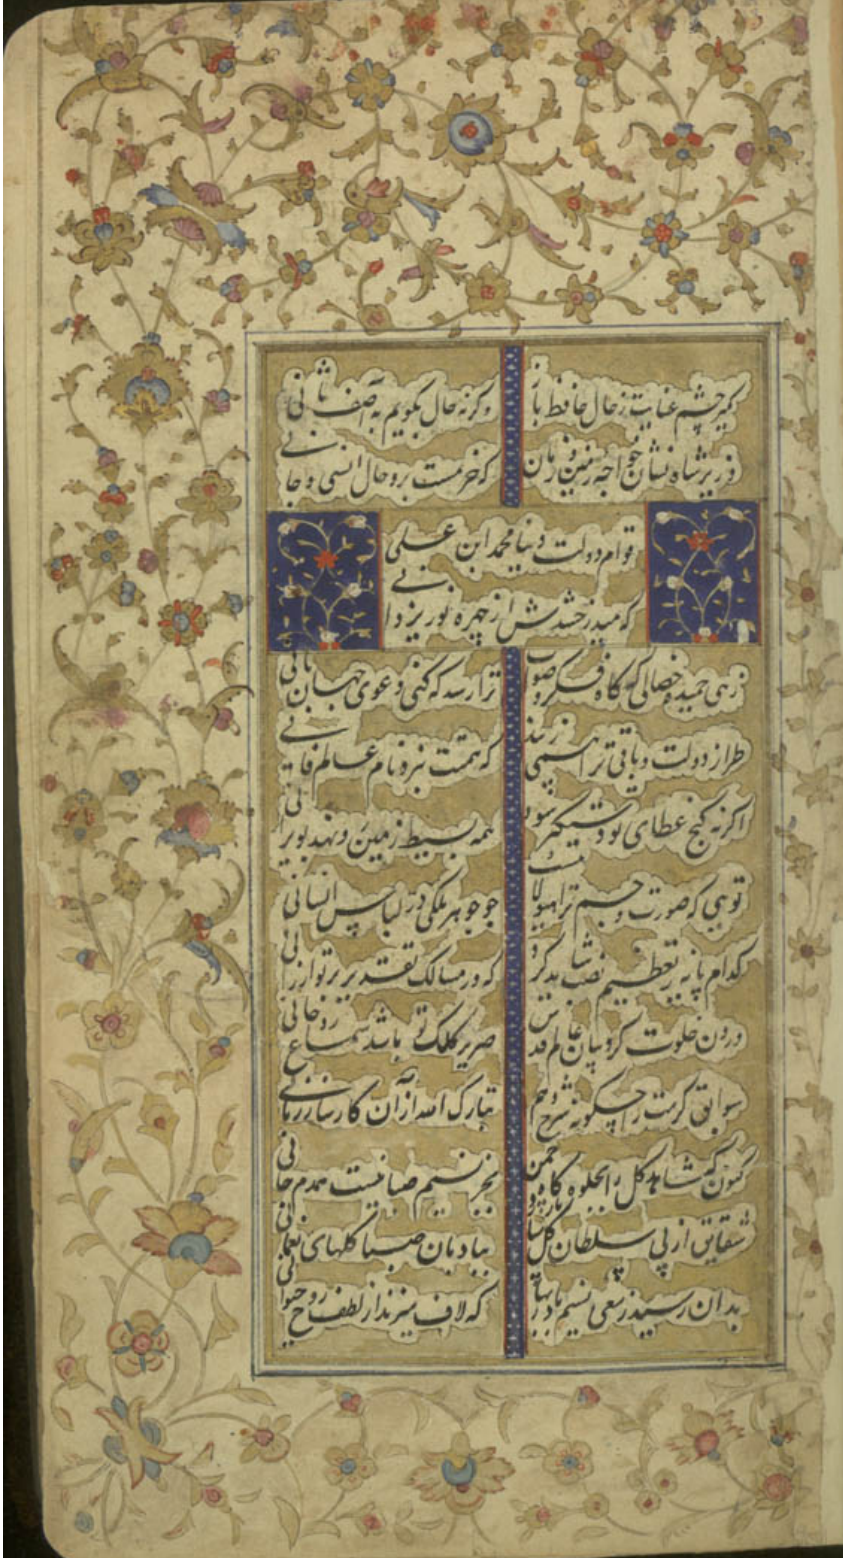 مگیر چشم عنایت ز حال حافظ باز وگرنه حال بگویم به آصف ثانی
وزیر شاه نشان خواجه زمین و زمان که خرمست برو حال انسی و جانی
قوام دولت دنیا محمد ابن علی
که میدرخشدش از چهره نور یزدانی
زهی حمیده خصالی که گاه فکر و صواب ترا رسد که کنی دعوی جهان بانی
طراز دولت و باقی ترا همی زیبد که همتت نبرد نام عالم فانی
اگر نه گنج عطای تو دستگیر شود همه بسیط زمین رو نهد بویرانی
تویی که صورت و جسم ترا هیولا نیست چو جوهر ملکی در لباس انسانی
کدام پایه تعظیم نصب شاید کرد که در مسالک تقدیر برتر از آنی
درون خلوت کروبیان عالم قدس صریر کلک تو باشد سماع روحانی
سوابق کرمت را چگونه شرح دهم تبارک الله از آن کارساز ربانی
کنون که شاهد گل را بجلوه گاه چمن بجز نسیم صبا نیست همدم جانی
شقایق از پی سلطان گل سپارد باز ببادبان صبا کلهای نعمانی
بدان رسید ز سعی نسیم باد بهار که لاف میزند از لطف روح حیوانی